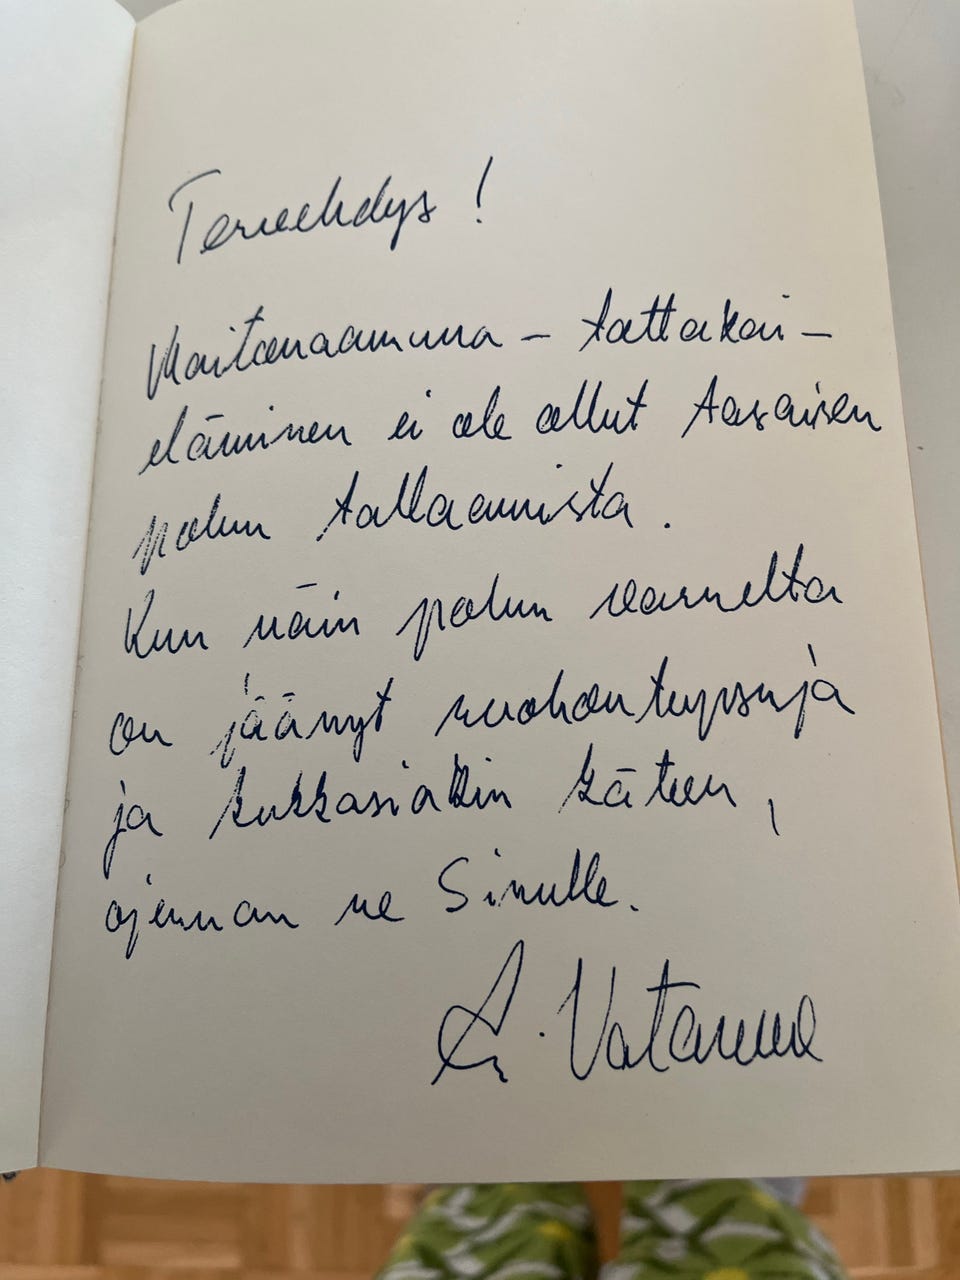 Tervehdys!
Maitonaamuna – tattakai –
eläminen ei ole ollut tasaisen
polun tallaamista.
Kun näin polun varrelta
on jäänyt ruohontupsuja
ja kukkasiakin käteen,
ojennan ne Sinulle.
A. Vatanen